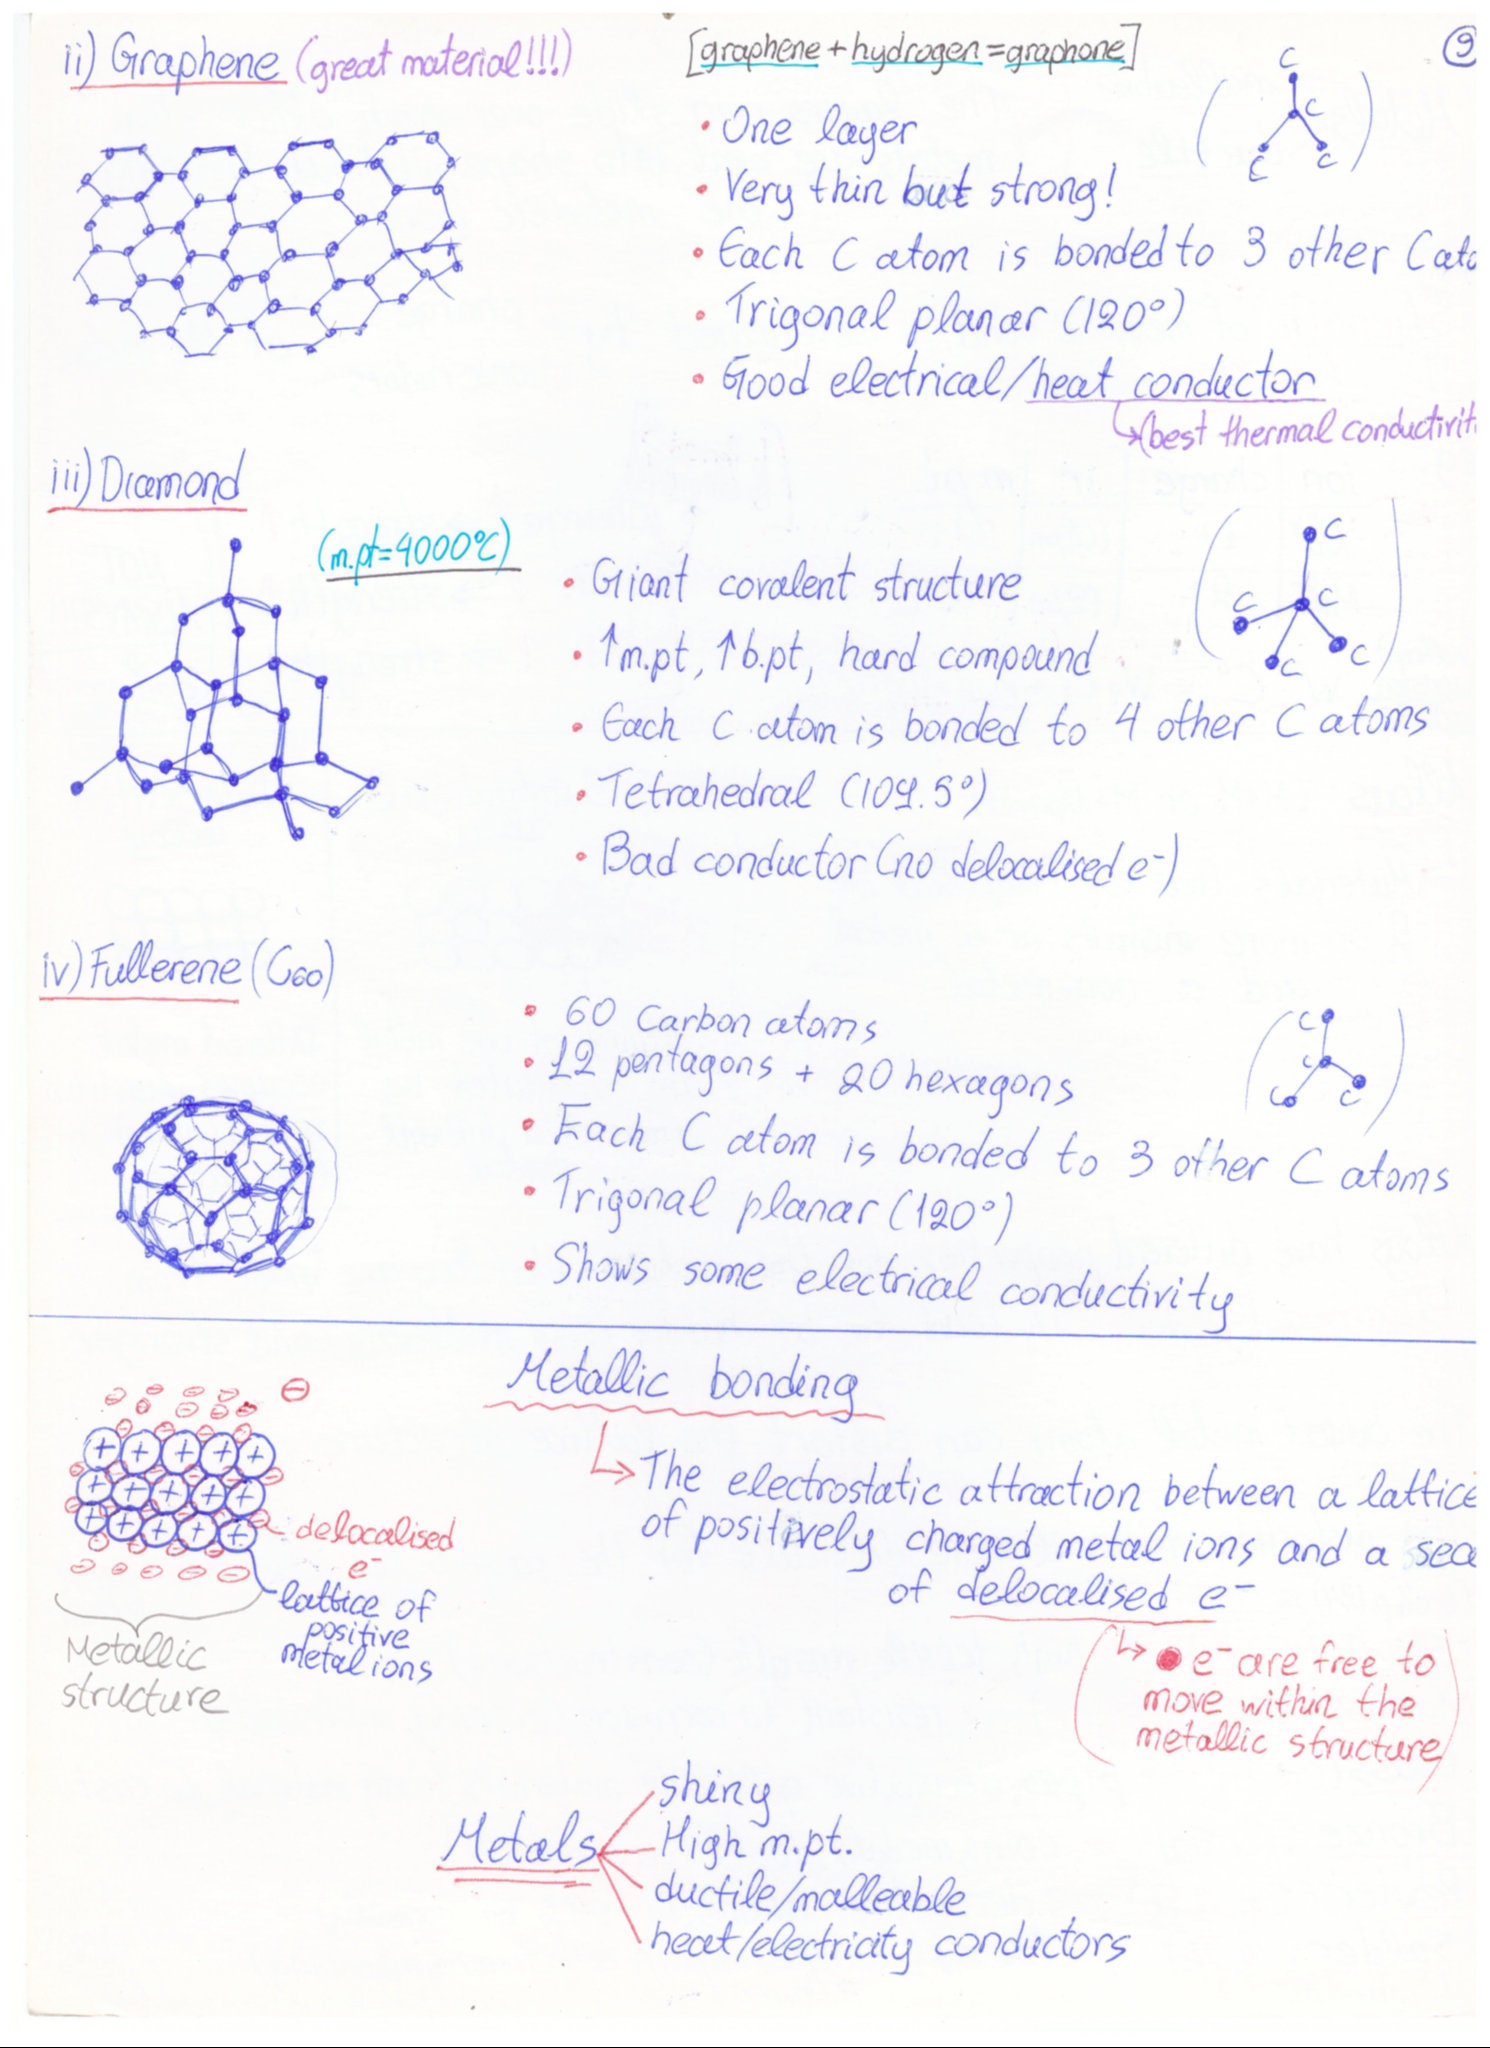 ii) Graphene (great material!!!)
[graphene + hydrogen = graphone]
9
• One layer
• Very thin but strong!
• Each C atom is bonded to 3 other C ato
• Trigonal planar (120°)
• Good electrical/heat conductor
↳(best thermal conductivit
C
C
C
C
iii) Diamond
(m.pt=4000°C)
• Giant covalent structure
• ↑m.pt, ↑b.pt, hard compound
• Each C atom is bonded to 4 other C atoms
• Tetrahedral (109.5°)
• Bad conductor (no delocalised e⁻)
C
C
C
C
C
iv) Fullerene (C₆₀)
• 60 carbon atoms
• 12 pentagons + 20 hexagons
• Each C atom is bonded to 3 other C atoms
• Trigonal planar (120°)
• Shows some electrical conductivity
C
C
C
C
Metallic bonding
↳ The electrostatic attraction between a lattice
of positively charged metal ions and a sea
of delocalised e⁻
(↳ • e⁻ are free to
move within the
metallic structure)
+ + + + +
+ + + + +
+ + + + +
delocalised
e⁻
lattice of
positive
metal ions
Metallic
structure
Metals
shiny
High m.pt.
ductile/malleable
heat/electricity conductors